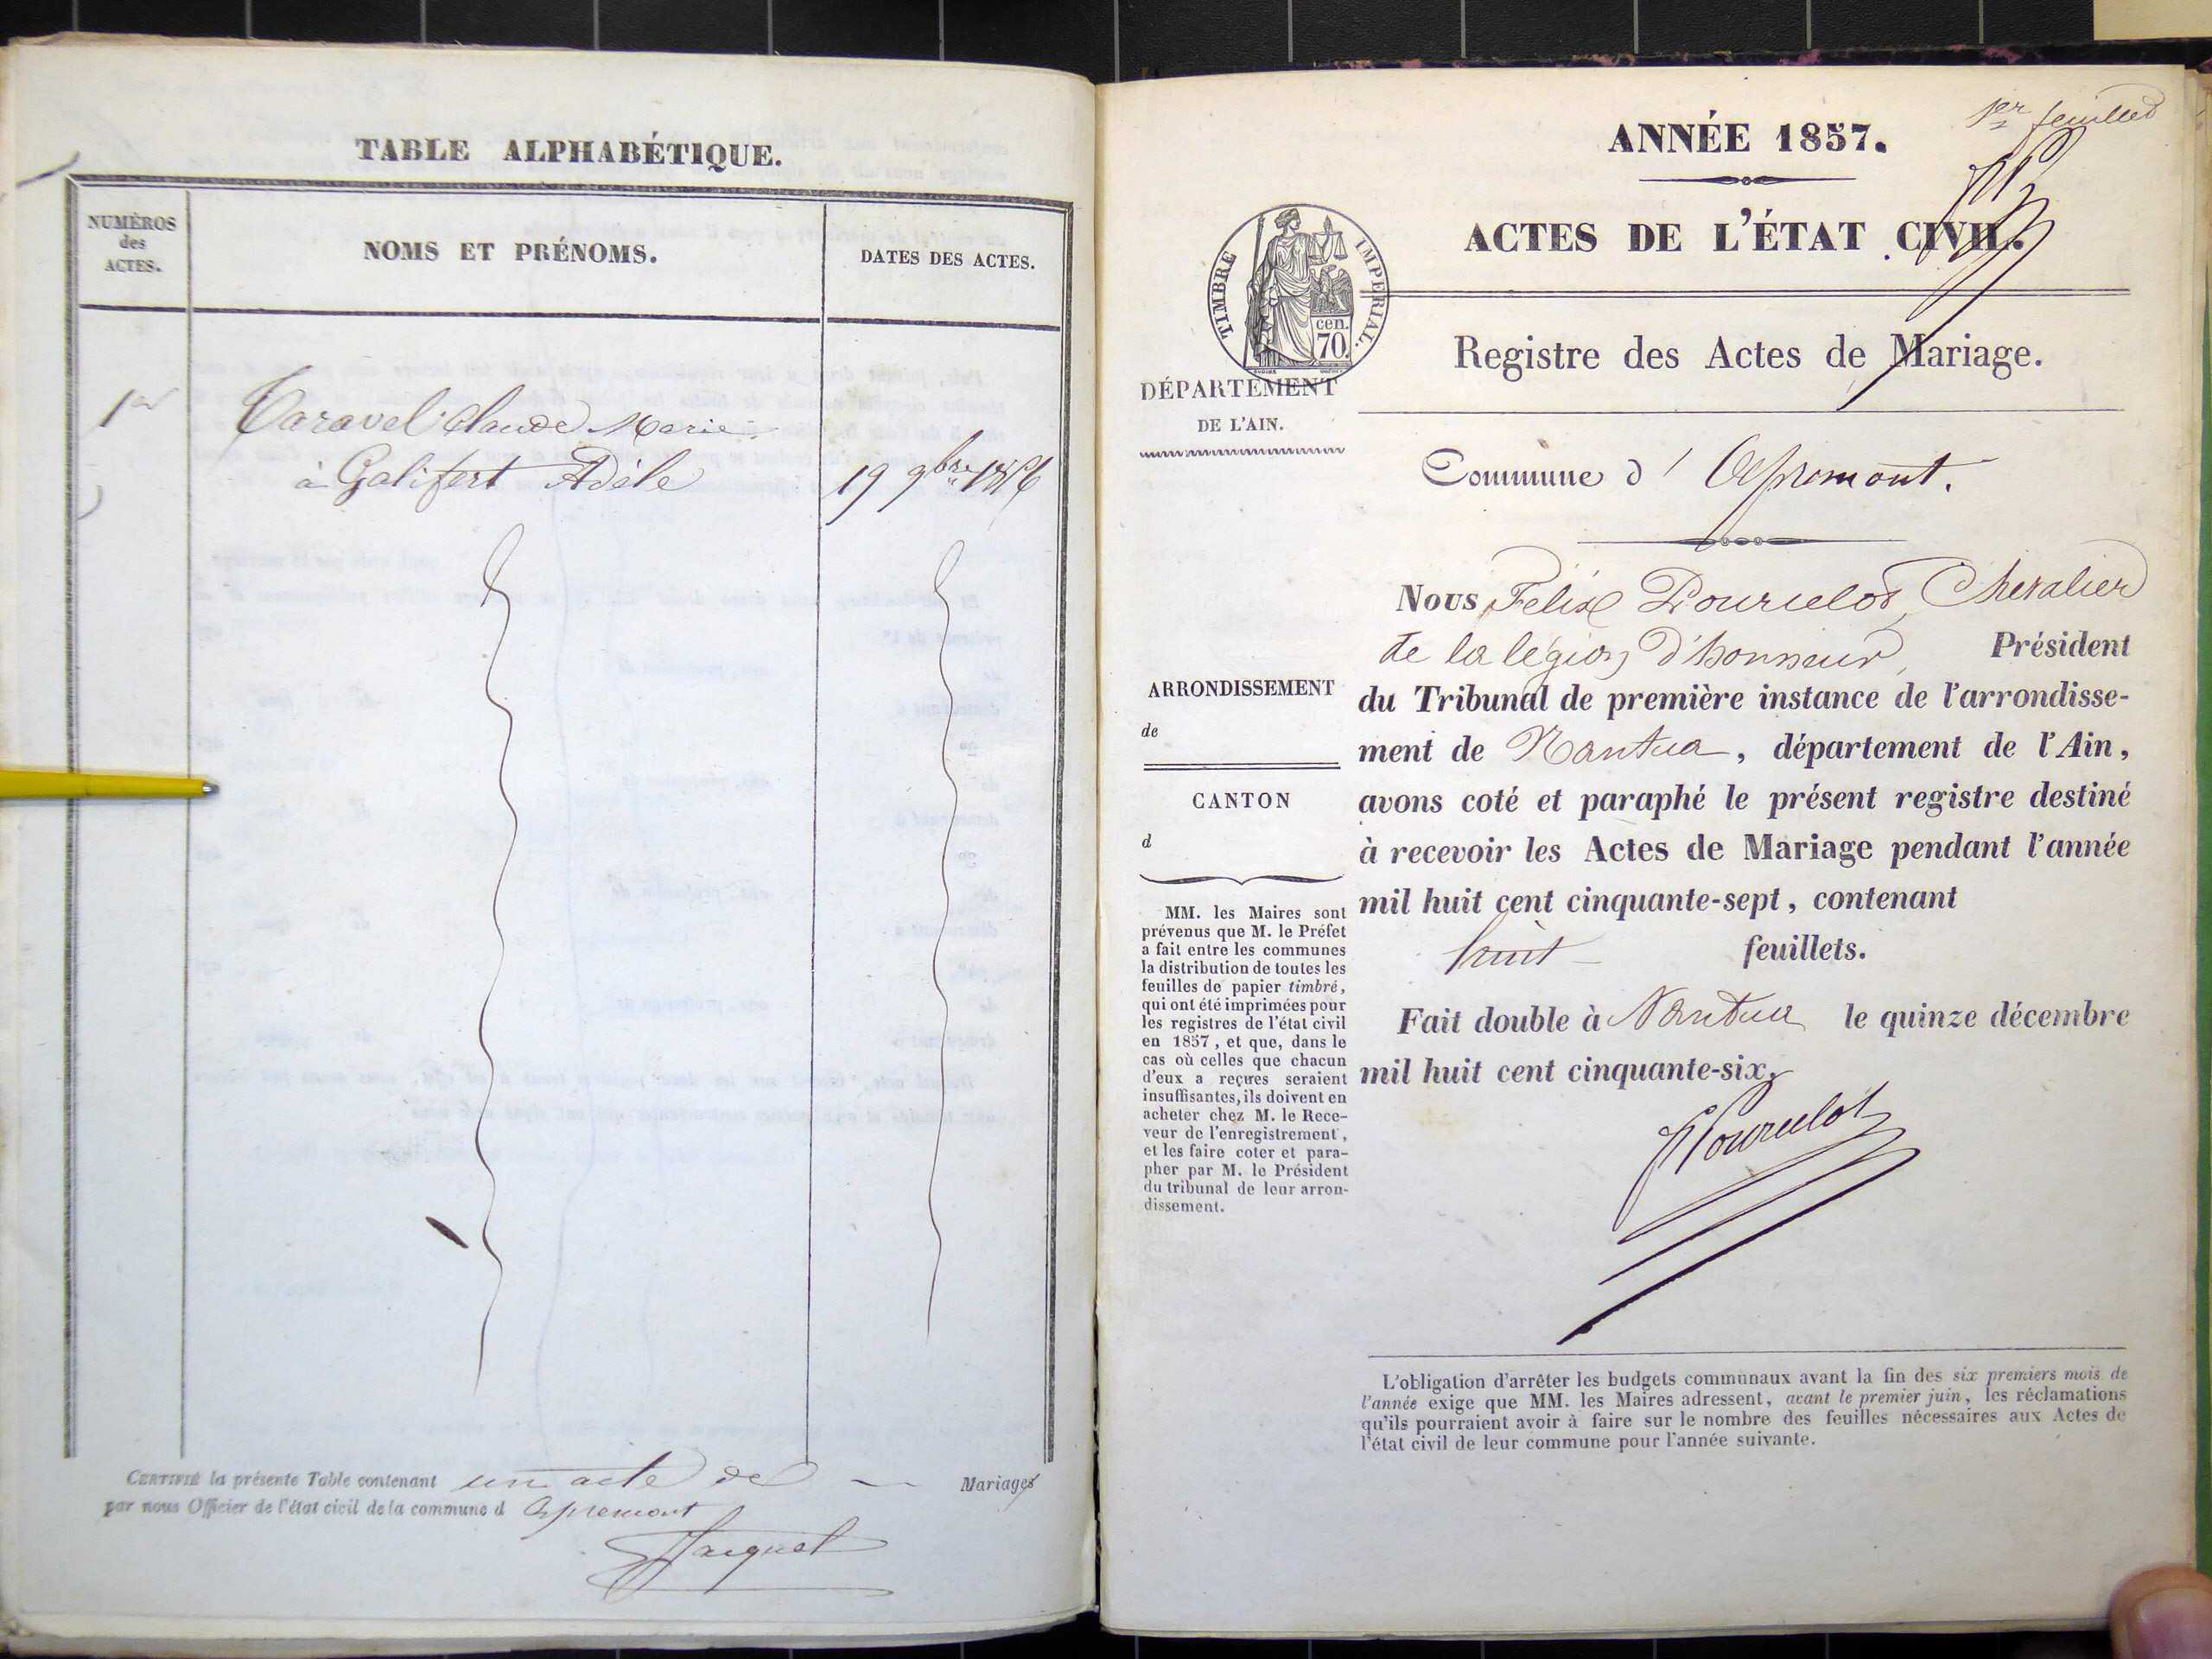 TABLE ALPHABÉTIQUE.
NUMÉROS
des
ACTES.
NOMS ET PRÉNOMS.
DATES DES ACTES.
1er
Caravel Claude Marie
à Galifert Adèle
19 9bre 1856
CERTIFIÉ la présente Table contenant un acte de Mariages
par nous Officier de l'état civil de la commune d Apremont
Jacquet
1er feuillet
ANNÉE 1857.
ACTES DE L'ÉTAT CIVIL.
TIMBRE IMPERIAL.
cen.
70.
Registre des Actes de Mariage.
DÉPARTEMENT
DE L'AIN.
Commune d'Apremont.
ARRONDISSEMENT
de
CANTON
d
MM. les Maires sont
prévenus que M. le Préfet
a fait entre les communes
la distribution de toutes les
feuilles de papier timbré,
qui ont été imprimées pour
les registres de l'état civil
en 1857, et que, dans le
cas où celles que chacun
d'eux a reçues seraient
insuffisantes, ils doivent en
acheter chez M. le Rece-
veur de l'enregistrement,
et les faire coter et para-
pher par M. le Président
du tribunal de leur arron-
dissement.
Nous Félix Pourcelot, Chevalier
de la légion d'honneur, Président
du Tribunal de première instance de l'arrondisse-
ment de Nantua, département de l'Ain,
avons coté et paraphé le présent registre destiné
à recevoir les Actes de Mariage pendant l'année
mil huit cent cinquante-sept, contenant
huit feuillets.
Fait double à Nantua le quinze décembre
mil huit cent cinquante-six.
F Pourcelot
L'obligation d'arrêter les budgets communaux avant la fin des six premiers mois de
l'année exige que MM. les Maires adressent, avant le premier juin, les réclamations
qu'ils pourraient avoir à faire sur le nombre des feuilles nécessaires aux Actes de
l'état civil de leur commune pour l'année suivante.